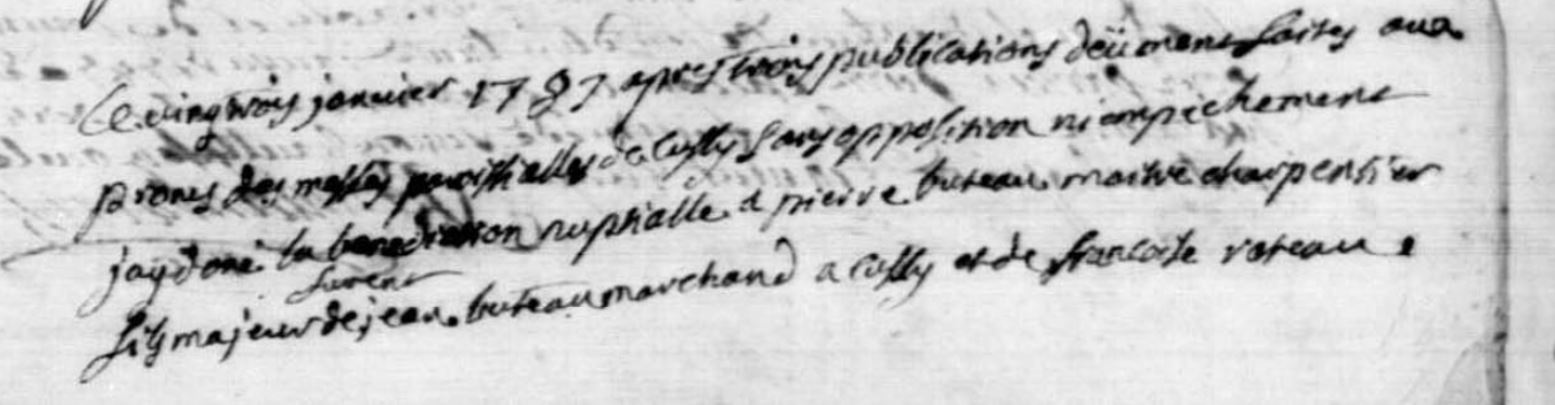 Le vingtrois janvier 1787 apres trois publications deüment faites aux
prones des messes paroissialles de cussy sans opposition ni empechement
jay doné la benediction nuptialle a pierre buteau maitre charpentier
furent
fils majeur de jean buteau marchand a cussy et de francoise rateau